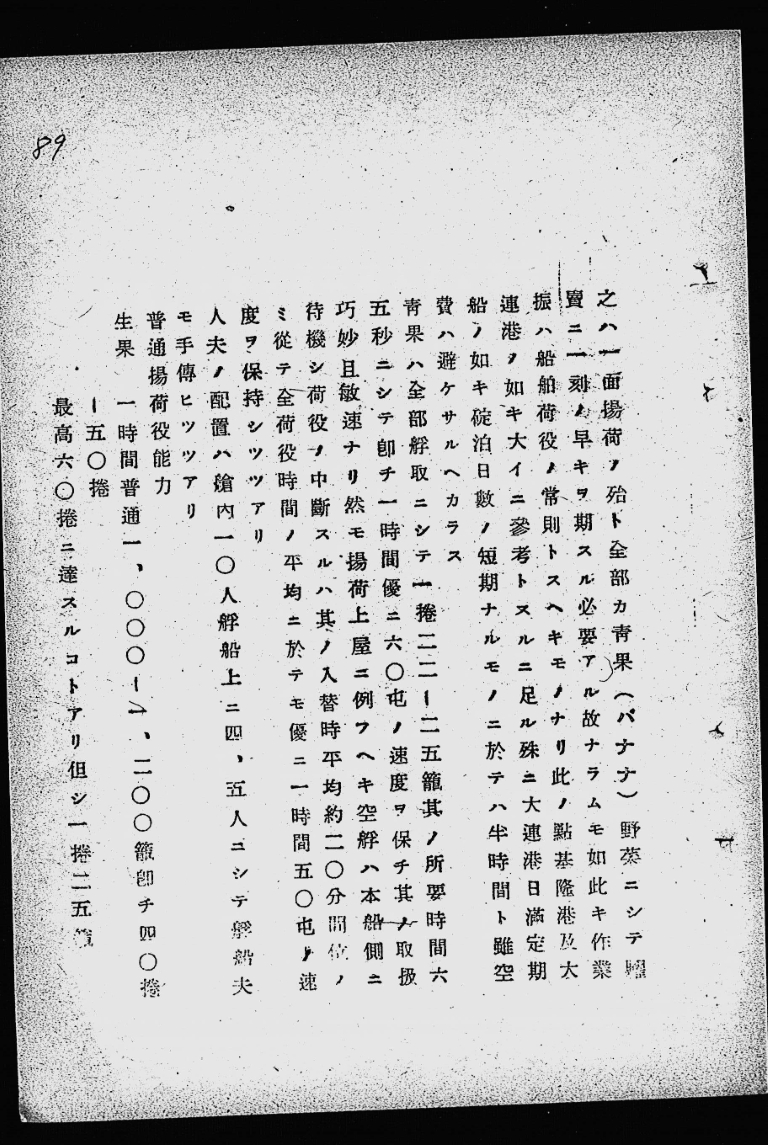 89
之ハ一面揚荷ノ殆ト全部カ靑果(バナナ)野菜ニシテ糶
賣ニ一刻ノ早キヲ期スル必要アル故ナラムモ如此キ作業
振ハ船舶荷役ノ常則トスヘキモノナリ此ノ點基隆港及大
連港ノ如キ大イニ參考トスルニ足ル殊ニ大連港日滿定期
船ノ如キ碇泊日數ノ短期ナルモノニ於テハ半時間ト雖空
費ハ避ケサルヘカラス
靑果ハ全部艀取ニシテ一捲二二ー二五籠其ノ所要時間六
五秒ニシテ卽チ一時間優ニ六〇屯ノ速度ヲ保チ其ノ取扱
巧妙且敏速ナリ然モ揚荷上屋ニ例フヘキ空艀ハ本船側ニ
待機シ荷役ノ中斷スルハ其ノ入替時平均約二〇分間位ノ
ミ從テ全荷役時間ノ平均ニ於テモ優ニ一時間五〇屯ノ速
度ヲ保持シツツアリ
人夫ノ配置ハ艙內一〇人艀船上ニ四、五人ニシテ艀船夫
モ手傳ヒツツアリ
普通揚荷役能力
生果 一時間普通一、〇〇〇ー一、二〇〇籠卽チ四〇捲
ー五〇捲
最高六〇捲ニ達スルコトアリ但シ一捲二五籠